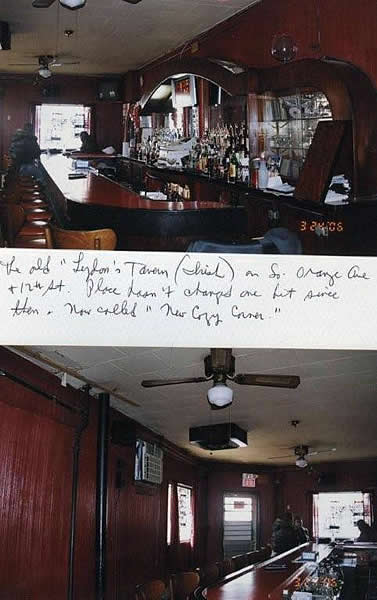 3 24 '06
The old "Leydon's Tavern (Irish) on So. Orange Ave
+ 12th St. Place hasn't changed one bit since
then. Now called "New Cozy Corner."
EXIT
3 24 '06